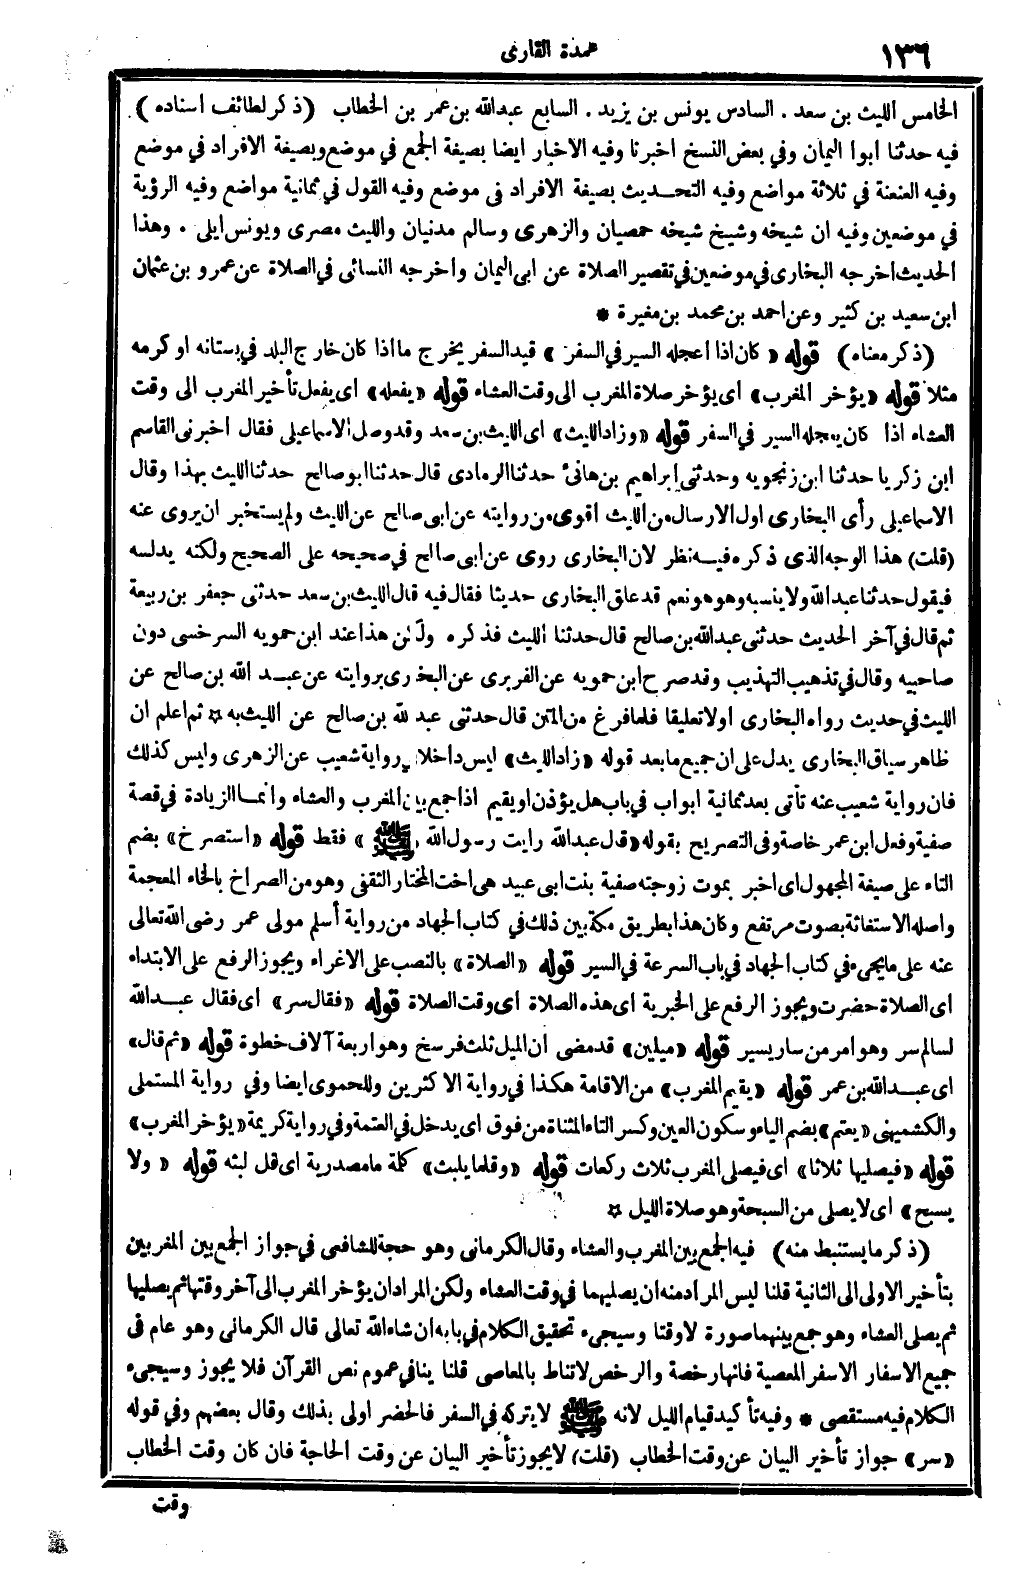 ١٣٦
عمدة القارى
الخامس الليث بن سعد . السادس يونس بن يزيد . السابع عبدالله بن عمر بن الخطاب (ذكر لطائف اسناده)
فيه حدثنا ابوا اليمان وفي بعض النسخ اخبرنا وفيه الاخبار ايضا بصيغة الجمع في موضع وبصيغة الافراد في موضع
وفيه العنعنة في ثلاثة مواضع وفيه التحديث بصيغة الافراد فى موضع وفيه القول في ثمانية مواضع وفيه الرؤية
في موضعين وفيه ان شيخه وشيخ شيخه حمصيان والزهرى وسالم مدنيان والليث مصرى ويونس ايلى . وهذا
الحديث اخرجه البخارى في موضعين في تقصير الصلاة عن ابى اليمان واخرجه النسائى في الصلاة عن عمرو بن عثمان
ابن سعيد بن كثير وعن احمد بن محمد بن مغيرة *
(ذكر معناه) قوله «كان اذا أعجله السير في السفر» قيد السفر يخرج ما اذا كان خارج البلد في بستانه او كرمه
مثلا قوله «يؤخر المغرب» اى يؤخر صلاة المغرب الى وقت العشاء قوله «يفعله» اى يفعل تأخير المغرب الى وقت
العشاء اذا كان يعجله السير في السفر قوله «وزاد الليث» اى الليث بن سعد وقد وصل الاسماعيلى فقال اخبرنى القاسم
ابن زكريا حدثنا ابن زنجويه وحدثنى ابراهيم بن هانئ حدثنا الرمادى قال حدثنا ابو صالح حدثنا الليث بهذا وقال
الاسماعيلى رأى البخارى اول الارسال من الليث اقوى من روايته عن ابى صالح عن الليث ولم يستخبر ان يروى عنه
(قلت) هذا الوجه الذى ذكره فيه نظر لان البخارى روى عن ابى صالح في صحيحه على الصحيح ولكنه يدلسه
فيقول حدثنا عبدالله ولا ينسبه وهو هو نعم قد علق البخارى حديثا فقال فيه قال الليث بن سعد حدثنى جعفر بن ربيعة
ثم قال في آخر الحديث حدثنى عبدالله بن صالح قال حدثنا الليث فذكره ولكن هذا عند ابن حمويه السرخسى دون
صاحبيه وقال في تذهيب التهذيب وقد صرح ابن حمويه عن الفربرى عن البخارى بروايته عن عبد الله بن صالح عن
الليث في حديث رواه البخارى اولا تعليقا فلما فرغ من المتن قال حدثنى عبد لله بن صالح عن الليث به ☆ ثم اعلم ان
ظاهر سياق البخارى يدل على ان جميع ما بعد قوله «زاد الليث» ليس داخلا في رواية شعيب عن الزهرى وليس كذلك
فان رواية شعيب عنه تأتى بعد ثمانية ابواب في باب هل يؤذن او يقيم اذا جمع بين المغرب والعشاء وانما الزيادة في قصة
صفية وفعل ابن عمر خاصة وفى التصريح بقوله «قال عبدالله رايت رسول الله ﷺ» فقط قوله «استصرخ» بضم
التاء على صيغة المجهول اى اخبر بموت زوجته صفية بنت ابى عبيد هى اخت المختار الثقفى وهو من الصراخ بالخاء المعجمة
واصله الاستغاثة بصوت مرتفع وكان هذا بطريق مكة بين ذلك في كتاب الجهاد من رواية أسلم مولى عمر رضى الله تعالى
عنه على ما يجىء في كتاب الجهاد في باب السرعة في السير قوله «الصلاة» بالنصب على الاغراء ويجوز الرفع على الابتداء
اى الصلاة حضرت ويجوز الرفع على الخبرية اى هذه الصلاة اى وقت الصلاة قوله «فقال سر» اى فقال عبدالله
لسالم سر وهو امر من سار يسير قوله «ميلين» قد مضى ان الميل ثلث فرسخ وهو اربعة آلاف خطوة قوله «ثم قال»
اى عبدالله بن عمر قوله «يقيم المغرب» من الاقامة هكذا في رواية الاكثرين وللحموى ايضا وفي رواية المستملى
والكشميهنى «يعتم» بضم الياء وسكون العين وكسر التاء المثناة من فوق اى يدخل في العتمة وفي رواية كريمة «يؤخر المغرب»
قوله «فيصليها ثلاثا» اى فيصلى المغرب ثلاث ركعات قوله «وقلما يلبث» كلمة ما مصدرية اى قل لبثه قوله «ولا
يسبح» اى لا يصلى من السبحة وهو صلاة الليل ☆
(ذكر ما يستنبط منه) فيه الجمع بين المغرب والعشاء وقال الكرمانى وهو حجة للشافعى في جواز الجمع بين المغربين
بتأخير الاولى الى الثانية قلنا ليس المراد منه ان يصليهما في وقت العشاء ولكن المراد ان يؤخر المغرب الى آخر وقتها ثم يصليها
ثم يصلى العشاء وهو جمع بينهما صورة لا وقتا وسيجىء تحقيق الكلام في بابه ان شاء الله تعالى قال الكرمانى وهو عام فى
جميع الاسفار الا سفر المعصية فانها رخصة والرخص لا تناط بالمعاصى قلنا ينافي عموم نص القرآن فلا يجوز وسيجىء
الكلام فيه مستقصى * وفيه تأكيد قيام الليل لانه ﷺ لا يتركه في السفر فالحضر اولى بذلك وقال بعضهم وفي قوله
«سر» جواز تأخير البيان عن وقت الخطاب (قلت) لا يجوز تأخير البيان عن وقت الحاجة فان كان وقت الخطاب
وقت